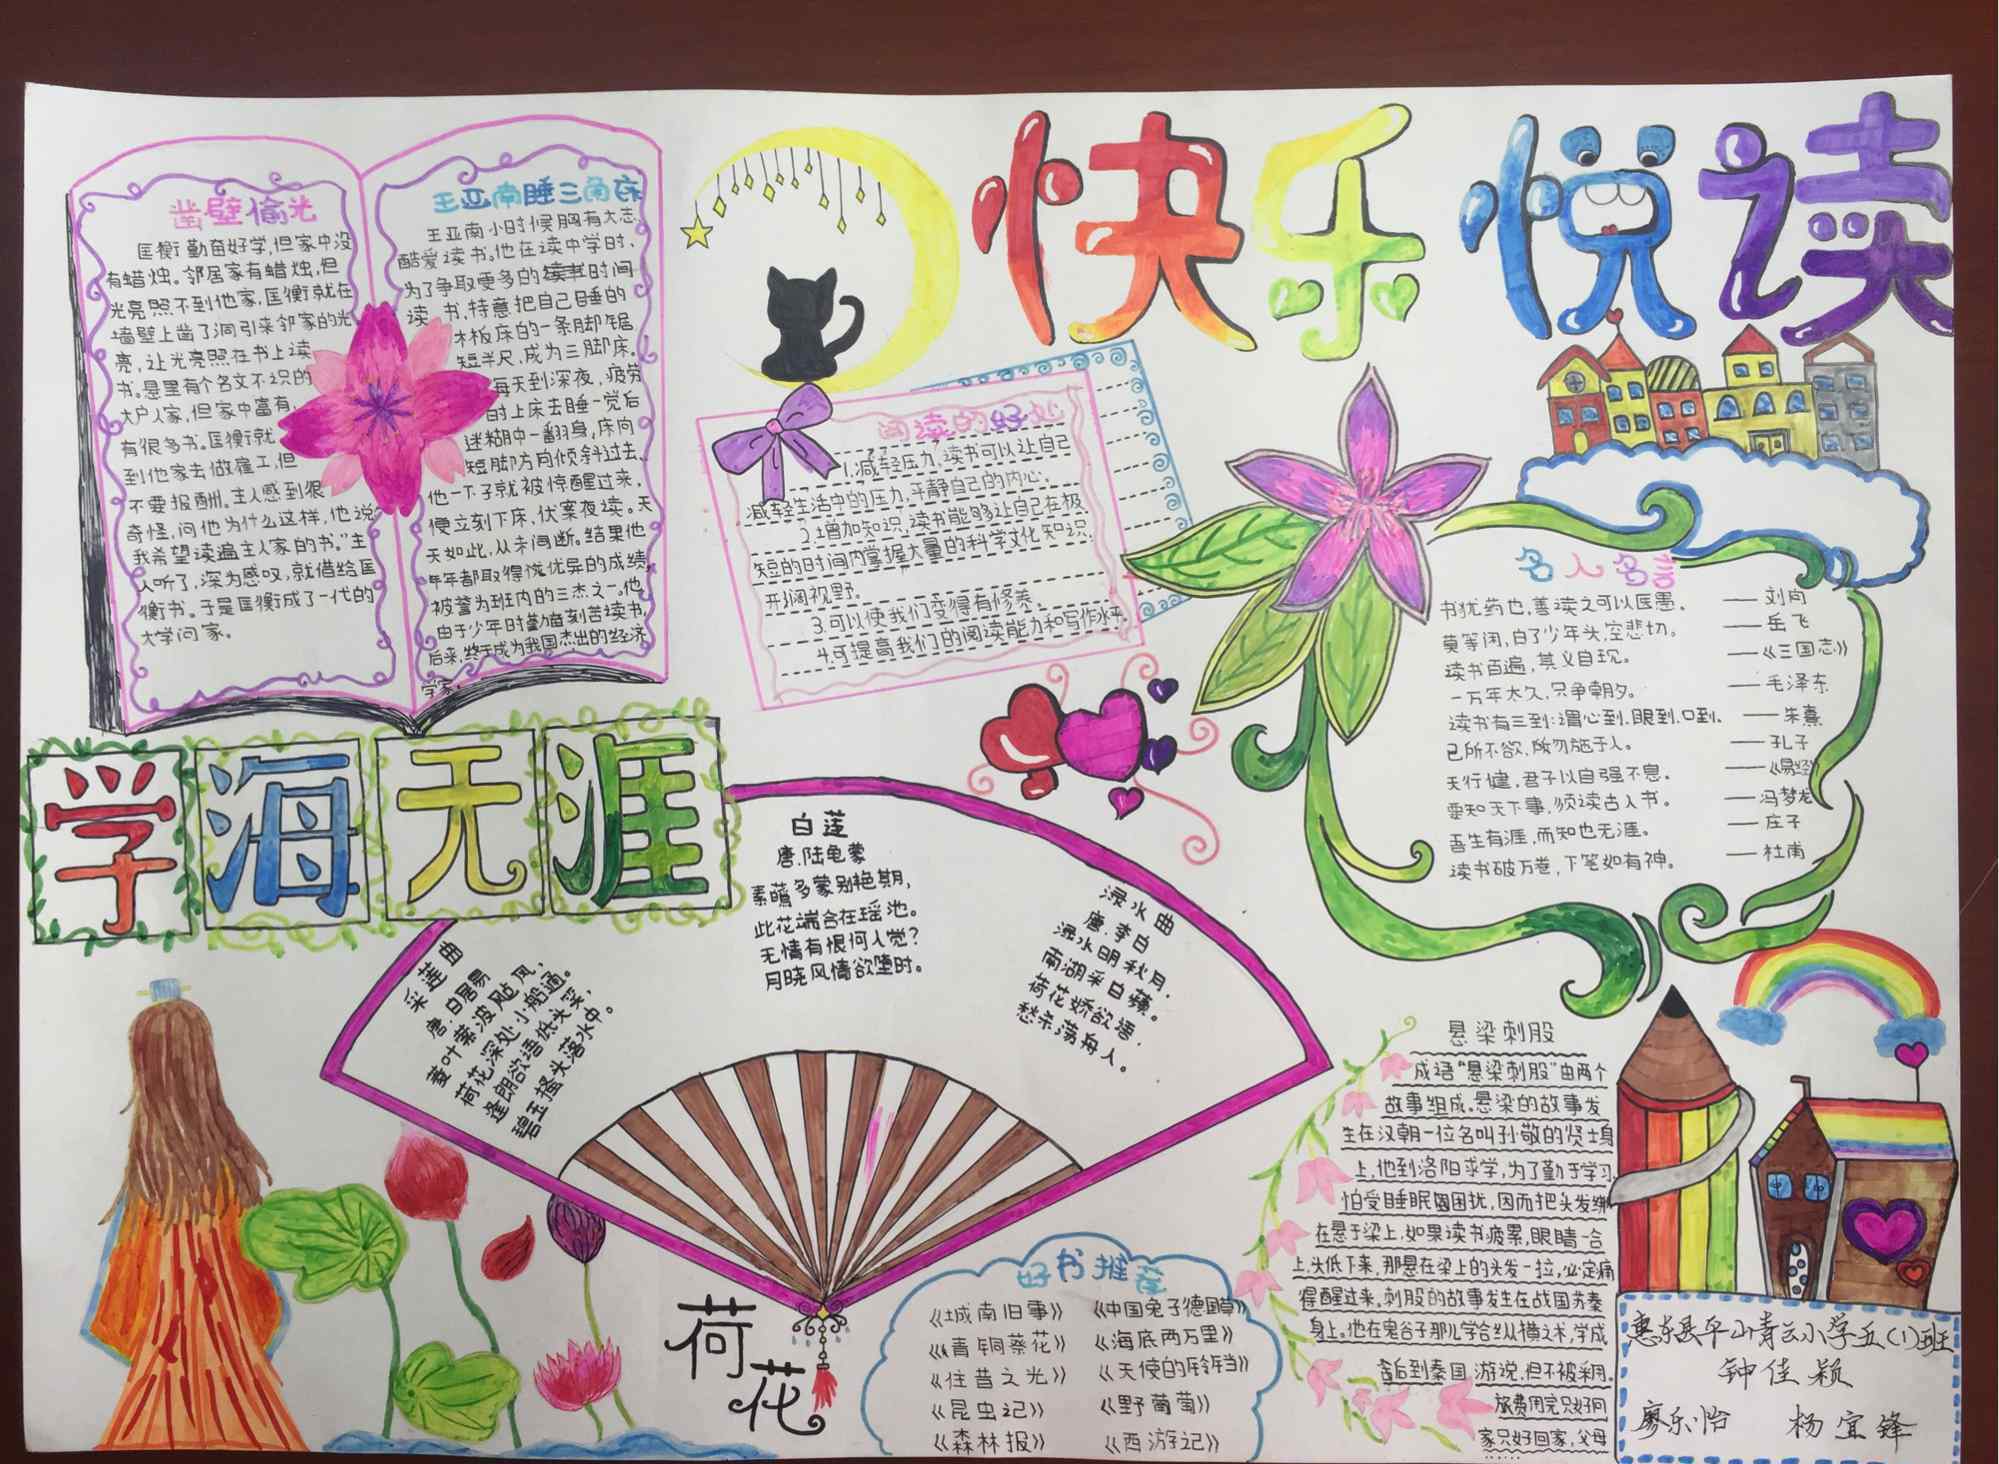 快乐悦读
凿壁偷光
匡衡勤奋好学,但家中没
有蜡烛。邻居家有蜡烛,但
光亮照不到他家,匡衡就在
墙壁上凿了洞引来邻家的光
亮,让光亮照在书上读
书。县里有个名文不识的
大户人家,但家中富有,
有很多书。匡衡就
到他家去做雇工,但
不要报酬。主人感到很
奇怪,问他为什么这样,他说
我希望读遍主人家的书。"主
人听了,深为感叹,就借给匡
衡书。于是匡衡成了一代的
大学问家。
王亚南睡三角床
王亚南小时候胸有大志,
酷爱读书。他在读中学时,
为了争取更多的读书时间
读书,特意把自己睡的
木板床的一条脚锯
短半尺,成为三脚床。
每天到深夜,疲劳
时上床去睡一觉后
迷糊中一翻身,床向
短脚方向倾斜过去,
他一下子就被惊醒过来,
便立刻下床,伏案夜读。天
天如此,从未间断。结果他
年年都取得优异的成绩,
被誉为班内的三杰之一。他
由于少年时勤奋刻苦读书,
后来,终于成为我国杰出的经济
学家。
阅读的好处
1.减轻压力,读书可以让自己
减轻生活中的压力,平静自己的内心。
2.增加知识,读书能够让自己在极
短的时间内掌握大量的科学文化知识,
开阔视野。
3.可以使我们变得有修养。
4.可提高我们的阅读能力和写作水平。
名人名言
书犹药也,善读之可以医愚。——刘向
莫等闲,白了少年头,空悲切。——岳飞
读书百遍,其义自现。——《三国志》
一万年太久,只争朝夕。——毛泽东
读书有三到:谓心到,眼到,口到。——朱熹
己所不欲,勿施于人。——孔子
天行健,君子以自强不息。——《易经》
要知天下事,须读古人书。——冯梦龙
吾生有涯,而知也无涯。——庄子
读书破万卷,下笔如有神。——杜甫
学海无涯
采莲曲
唐.白居易
菱叶萦波风飐风,
荷花深处小船通。
逢郎欲语低头笑,
碧玉搔头落水中。
白莲
唐.陆龟蒙
素蘤多蒙别艳欺,
此花端合在瑶池。
无情有恨何人觉?
月晓风清欲堕时。
渌水曲
唐.李白
渌水明秋月,
南湖采白蘋。
荷花娇欲语,
愁杀荡舟人。
荷花
好书推荐
《城南旧事》 《中国兔子德国草》
《青铜葵花》 《海底两万里》
《往昔之光》 《天使的铃铛》
《昆虫记》 《野葡萄》
《森林报》 《西游记》
悬梁刺股
成语"悬梁刺股"由两个
故事组成.悬梁的故事发
生在汉朝一位名叫孙敬的贤士身
上,他到洛阳求学,为了勤于学习,
怕受睡眠困扰,因而把头发绑
在悬于梁上,如果读书疲累,眼睛一合
上,头低下来,那悬在梁上的头发一拉,必定痛
得醒过来,刺股的故事发生在战国苏秦
身上。他在鬼谷子那儿学合纵横之术,学成
后到秦国游说,但不被采用。
旅费用完只好回
家只好回家,父母
惠东县平山青云小学五(1)班
钟佳颖
廖乐怡 杨宜锋